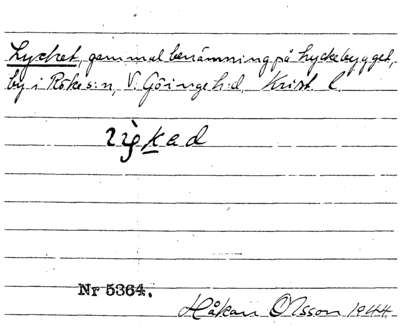 Lycket, gammal benämning på Lyckebygget,
by i Röke s:n, V. Göinge h:d. Krist. l.
Nr 5364.
Håkan Olsson 1944